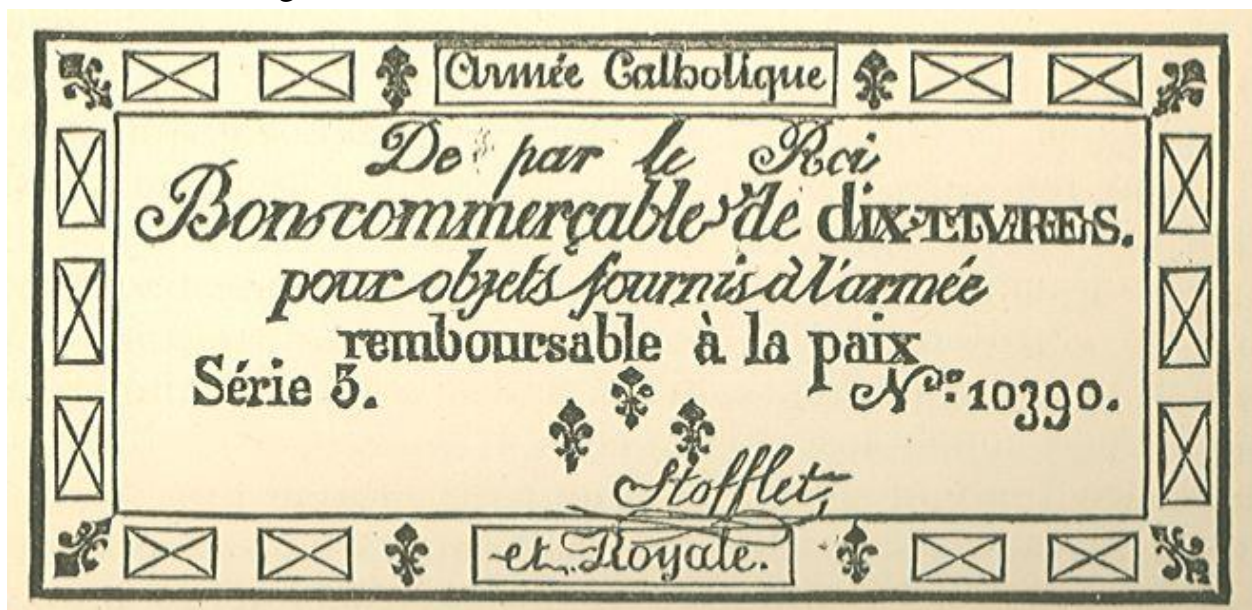 Armée Catholique
De par le Roi
Bon commerçable de dix LIVRES.
pour objets fournis à l'armée
remboursable à la paix
Série 3. No: 10390.
Stofflet
et Royale.